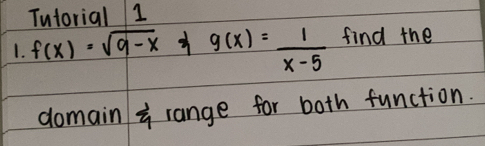 Tutorial 1
1. f(x) = √9-x & g(x) = 1/(x-5) find the
domain & range for both function.